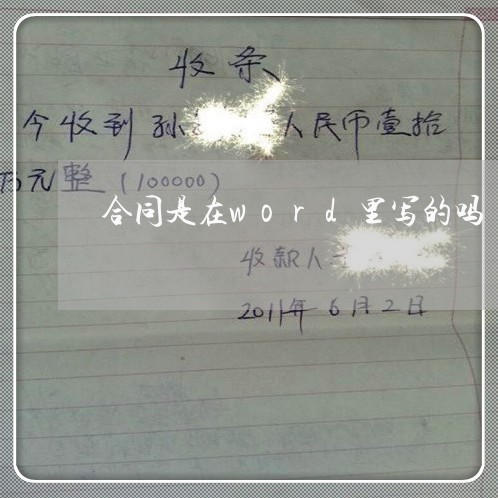 收条
今收到孙 人民币壹拾
万元整（100000）
合同是在word里写的吗
收款人
2011年6月2日